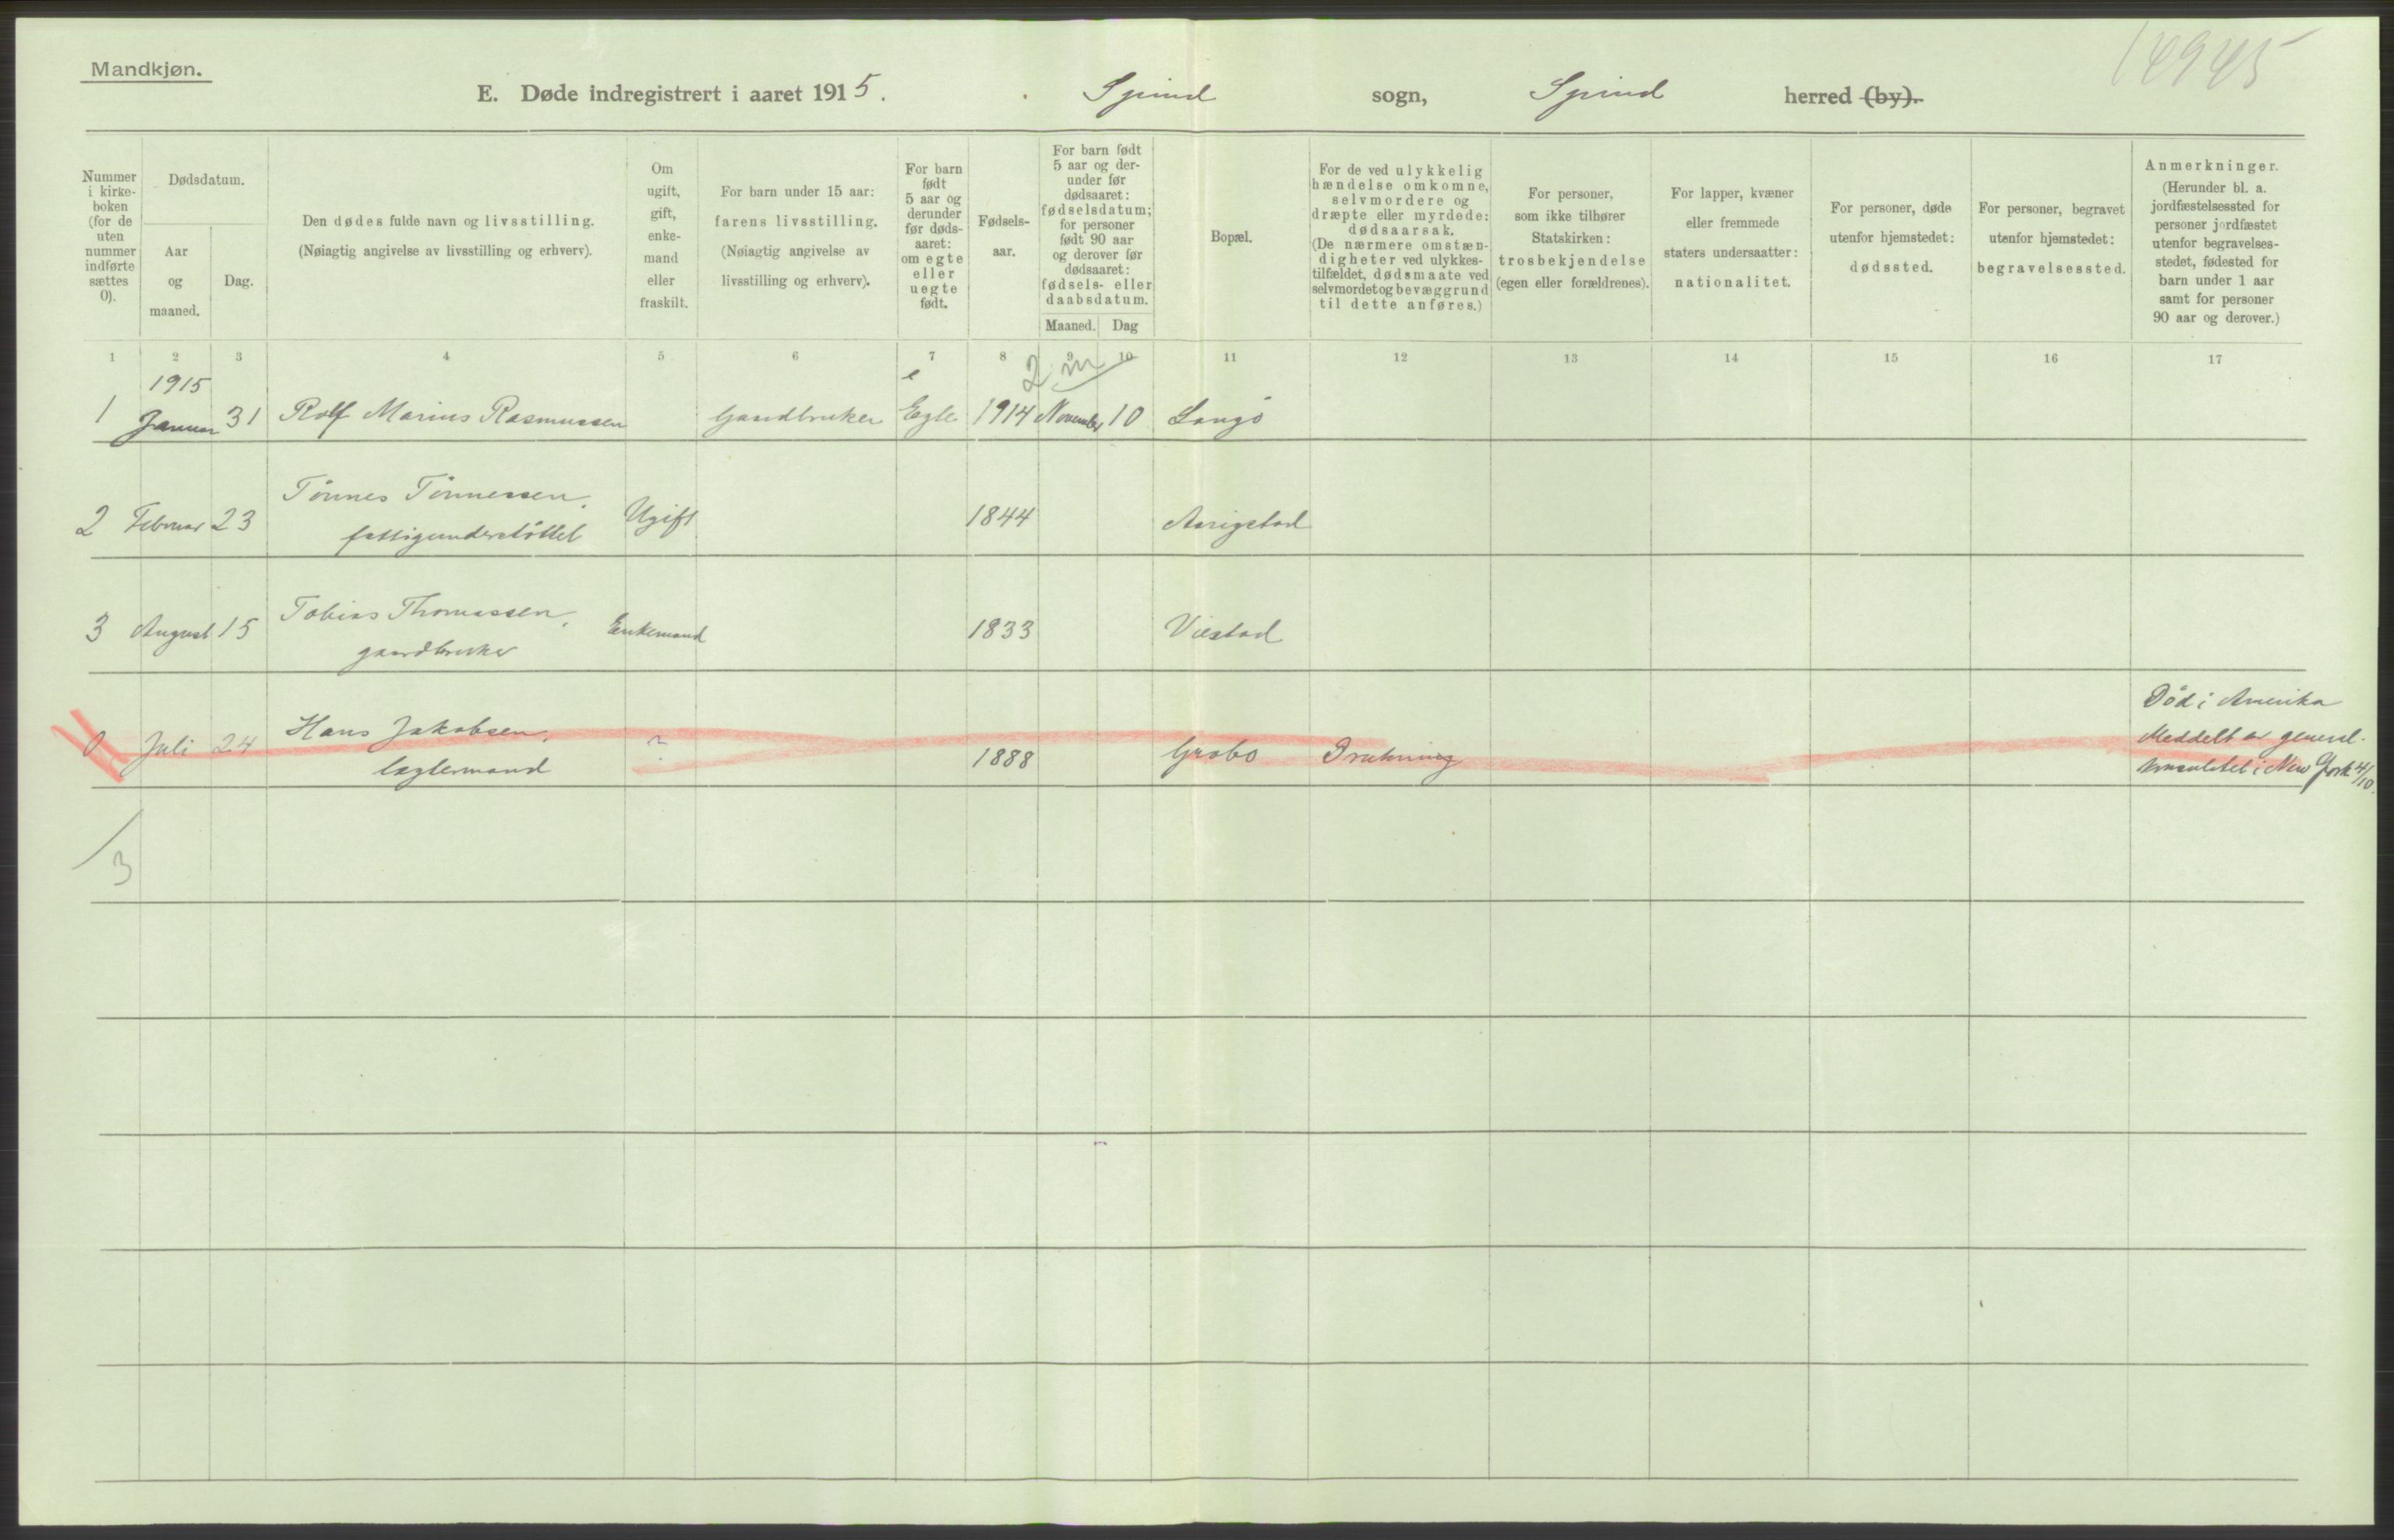 Mandkjøn.
14945
E. Døde indregistrert i aaret 1915. Spind sogn, Spind herred (by).
Nummer i kirke- boken (for de uten nummer indførte sættes 0).
Dødsdatum.
Aar og maaned.
Dag.
Den dødes fulde navn og livsstilling.
(Nøiagtig angivelse av livsstilling og erhverv).
Om ugift, gift, enke- mand eller fraskilt.
For barn under 15 aar: farens livsstilling.
(Nøiagtig angivelse av livsstilling og erhverv).
For barn født 5 aar og derunder før døds- aaret: om egte eller uegte født.
Fødsels- aar.
For barn født 5 aar og der- under før dødsaaret: fødselsdatum; for personer født 90 aar og derover før dødsaaret: fødsels- eller daabsdatum.
Maaned. Dag
Bopæl.
For de ved ulykkelig hændelse omkomne, selvmordere og dræpte eller myrdede: dødsaarsak.
(De nærmere omstæn- digheter ved ulykkes- tilfældet, dødsmaate ved selvmordet og bevæggrund til dette anføres.)
For personer, som ikke tilhører Statskirken: trosbekjendelse (egen eller forældrenes).
For lapper, kvæner eller fremmede staters undersaatter: nationalitet.
For personer, døde utenfor hjemstedet: dødssted.
For personer, begravet utenfor hjemstedet: begravelsessted.
Anmerkninger.
(Herunder bl. a. jordfæstelsessted for personer jordfæstet utenfor begravelses- stedet, fødested for barn under 1 aar samt for personer 90 aar og derover.)
1 2 3 4 5 6 7 8 9 10 11 12 13 14 15 16 17
1915 e 2 m
1 Januar 31 Rolf Marius Rasmussen Gaardbruker Egte 1914 November 10 Langö
2 Februar 23 Tönnes Tönnessen, Ugift 1844
fattigunderstöttet
3 August 15 Tobias Thomassen, Enkemand 1833 Viestad
gaardbruker
0 Juli 24 Hans Jakobsen, ? 1888 Grobo Drukning
lægtermand
Död i Amerika
Meddelt av general-
konsulatet i New York 4/10.
3